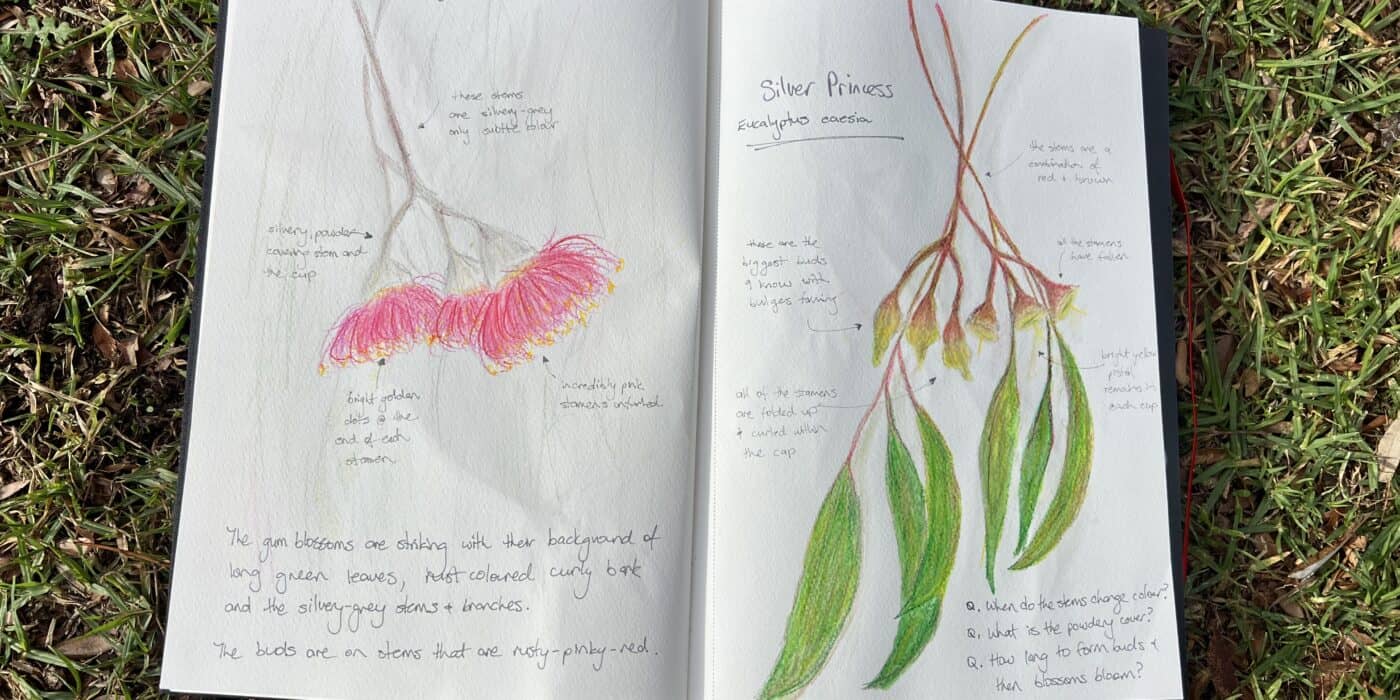 these stems
are silvery-grey
only subtle colour
silvery, powder
covering stem and
the cup
bright golden
dots @ the
end of each
stamen
incredibly pink
stamens unfurled
The gum blossoms are striking with their background of
long green leaves, rust coloured curly bark
and the silvery-grey stems + branches.
The buds are on stems that are rusty-pinky-red.
Silver Princess
Eucalyptus caesia
the stems are a
combination of
red + brown
these are the
biggest buds
I know with
bulges forming
all the stamens
have fallen
all of the stamens
are folded up
+ curled within
the cap
bright yellow
pistol
remains in
each cup
Q. When do the stems change colour?
Q. What is the powdery cover?
Q. How long to form buds +
then blossoms bloom?